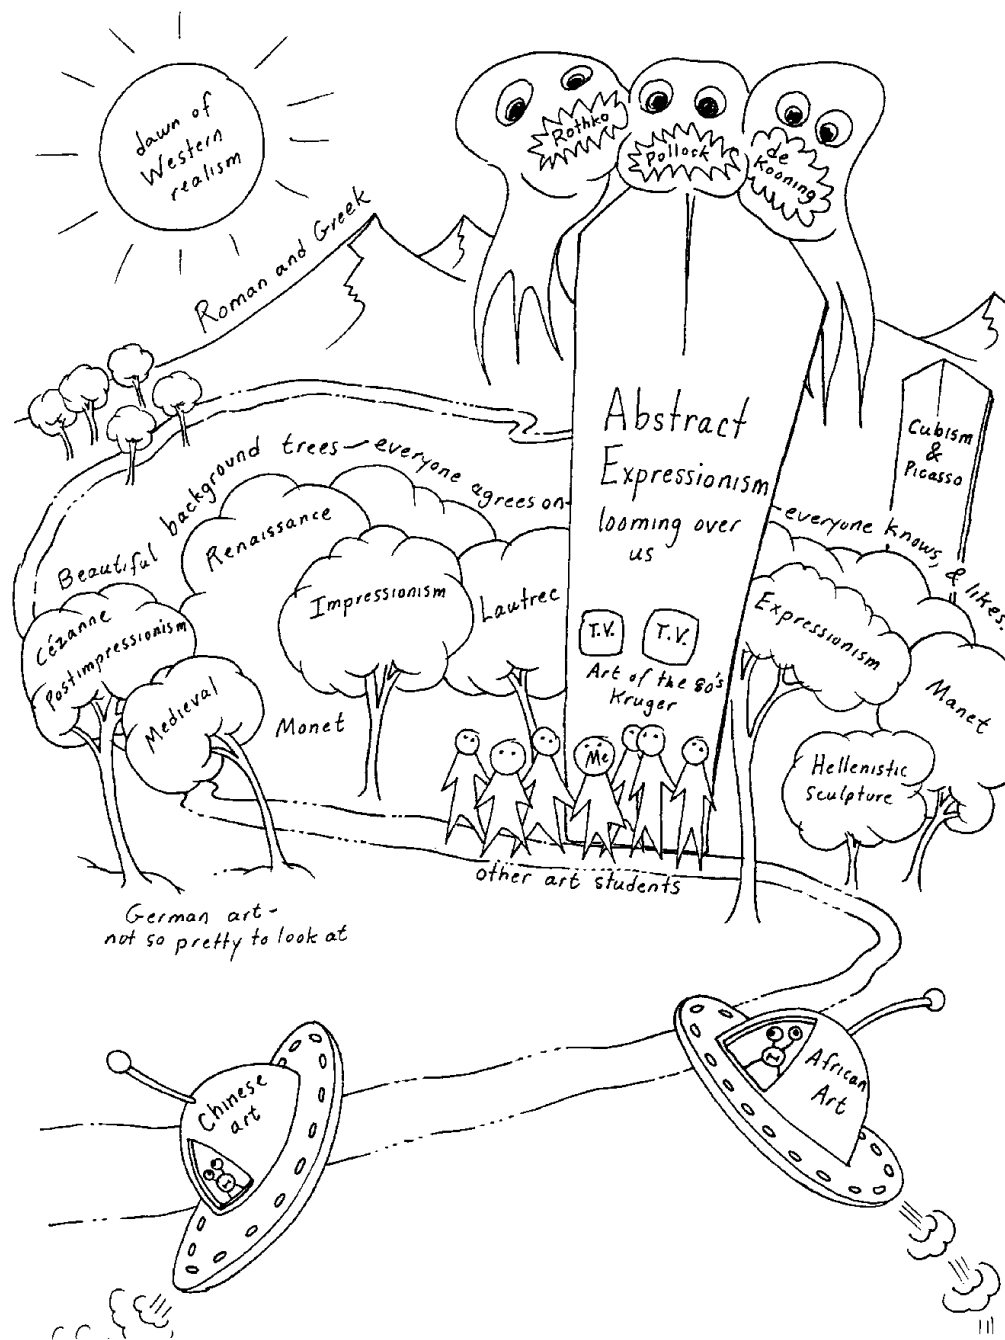 dawn of
Western
realism
Rothko
Pollock
de
Kooning
Roman and Greek
Abstract
Expressionism
looming over
us
Cubism
&
Picasso
Beautiful background trees—everyone agrees on-
-everyone knows, & likes.
Renaissance
Impressionism
Lautrec
Cézanne
Postimpressionism
Medieval
Monet
T.V.
T.V.
Art of the 80's
Kruger
Expressionism
Manet
Hellenistic
Sculpture
Me
other art students
German art-
not so pretty to look at
Chinese
art
African
Art